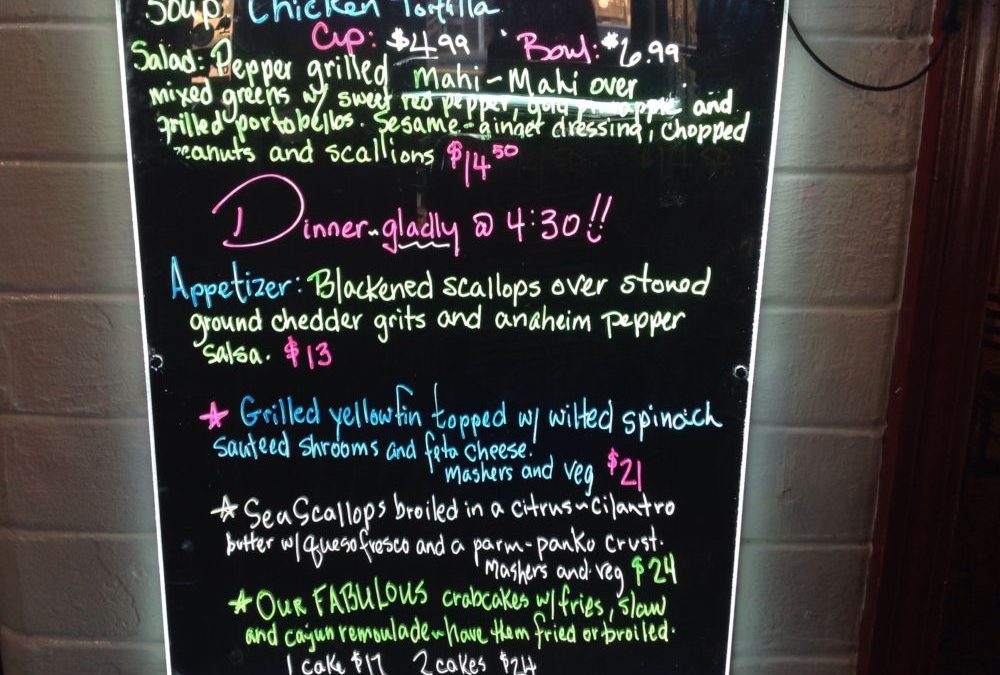 Soup: Chicken Tortilla
Cup: $4.99 Bowl: $6.99
Salad: Pepper grilled Mahi-Mahi over
mixed greens w/ sweet red pepper, gold pineapple and
grilled portobellos. Sesame-ginger dressing, chopped
peanuts and scallions $14.50
Dinner-gladly @ 4:30!!
Appetizer: Blackened scallops over stoned
ground chedder grits and anaheim pepper
salsa. $13
Grilled yellowfin topped w/ wilted spinach
sauteed shrooms and feta cheese.
Mashers and veg $21
Sea Scallops broiled in a citrus-cilantro
butter w/ queso fresco and a parm-panko crust.
Mashers and veg $24
Our FABULOUS crabcakes w/ fries, slaw
and cajun remoulade-have them fried or broiled.
1 cake $17 2 cakes $24